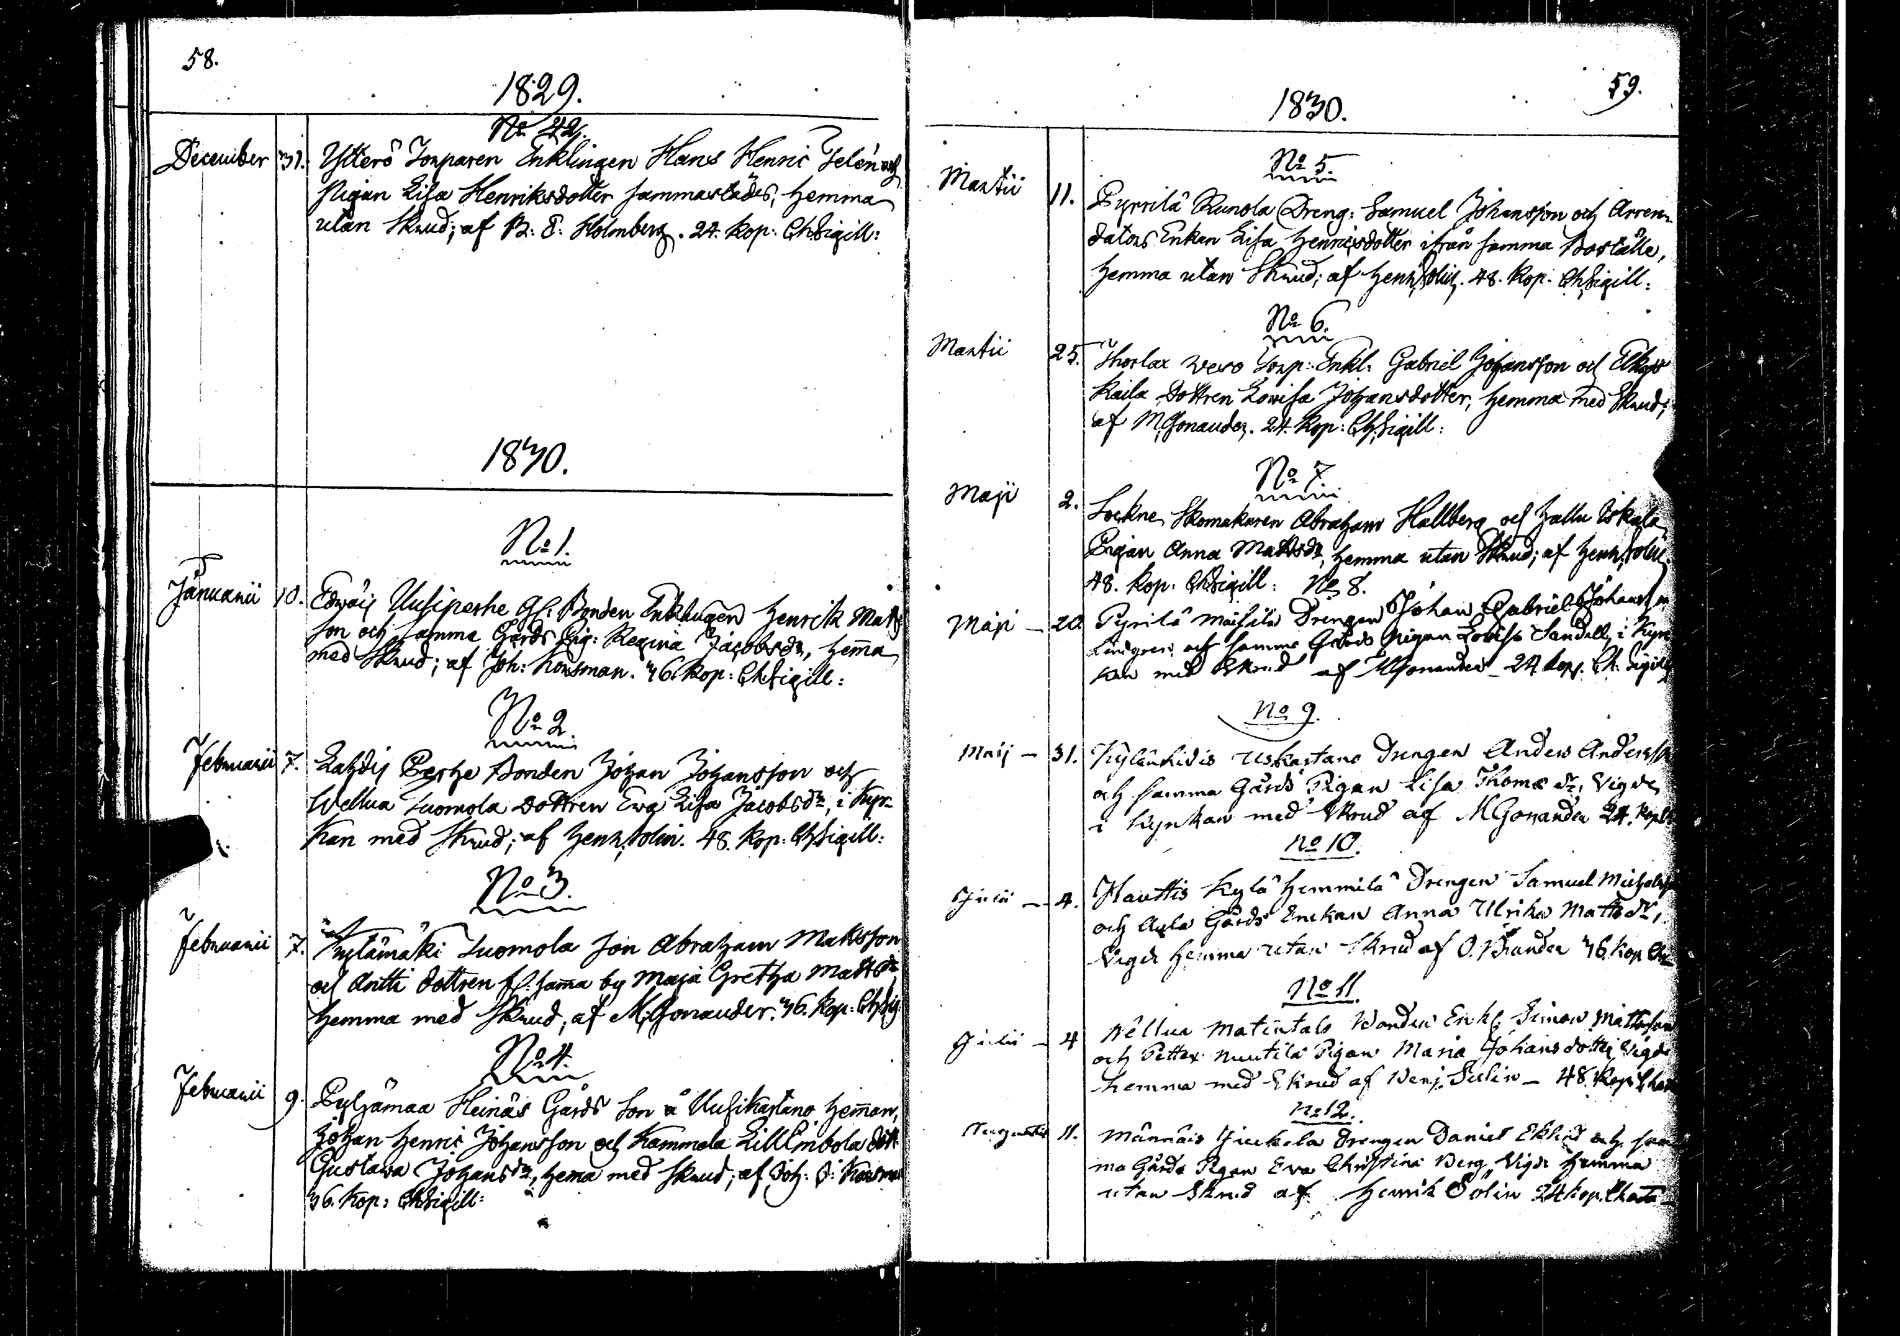 58.
1829.
No 42.
December 31. Ytterö Torparen Enklingen Hans Henric Jelén och
Pigan Lisa Henriksdotter sammastädes, hemma
utan Skrud; af B: E: Holmberg. 24. kop: Ch Sigill:
1830.
No 1.
Januarii 10. Uusiperhe Bonden Enklingen Henrik Matts
son och samma Gårds Pig: Regina Jacobsdr, hema
med Skrud; af Joh: Korsman. 36. kop: Ch Sigill:
No 2
Februarii 7. Lahdis Perhe Bonden Johan Johansson och
Wellua Tuomola dottren Eva Lisa Jacobsdr i Kyr-
kan med Skrud; af Henr, Solin. 48. kop: Ch Sigill:
No 3.
Februarii 7. Kylämäki Tuomola Son Abraham Mattsson
och Antti dottren fr. sama by Maja Gretha Mattsdr
hemma med Skrud, af M, Gonander. 36. kop: Ch Sig
No 4.
Februarii 9. Pyhämaa Heinäs Gårds Son å Uusikartano heman,
Johan Henric Johansson och Kammela Lill Embola dott
Gustava Johansdr, hema med Skrud; af Joh: Korsman
36. kop: Ch Sigill:
59.
1830.
No 5
Martii 11. Pyrrilä Runola Dreng: Samuel Johansson och Arren-
dators Enkan Lisa Henricsdotter ifrån samma Boställe,
hemma utan Skrud; af Henr, Solin. 48. kop. Ch Sigill:
No 6.
Martii 25. Thorlax Torp: Enkl: Gabriel Johansson och
Kaila Dottren Lovisa Johansdotter, hemma med Skrud;
af M, Gonander. 24. kop: Ch, Sigill:
No 7
Maji 2. Lockne Skomakaren Abraham Hallberg och Hallu Iskala
Pigan Anna Mattsdr, hemma utan Skrud; af Henr, Solin
48. kop: Ch Sigill: No 8.
Maji – 20. Pyrilä Drengen Johan Gabriel Johansson
Lindgren och samma Gårds Pigan Lovisa Sandell, i Kyr
kan med Skrud af M Gonander – 24 kop. Ch. Sigill
No 9.
Maij – 31. Kylänkidis Uskartano Drengen Anders Anderss
och samma Gårds Pigan Lisa Thomæ dr, Vigde
i Kyrkan med Skrud af M Gonander 24. kop
No 10.
– 4. Hauttis Kylä Hemmilä Drengen Samuel Michels
och Gårds Enckan Anna Ulrika Matts dr,
Vigde hemma utan Skrud af O. Brander 36 kop Ch
No 11.
– 4 Wellua Matintalo Bonden Enkl. Simon Mattsson
och Pettex Nuutila Pigan Maria Johansdotter Vigde
hemma med Skrud af Benj. Sulin – 48. kop Char
No 12.
Augusti 11. Männäis Juckola Drengen Daniel och sam
ma Gårds Pigan Eva Christina Berg Vigde hemma
utan Skrud af Henrik Solin 24 kop. Charta –